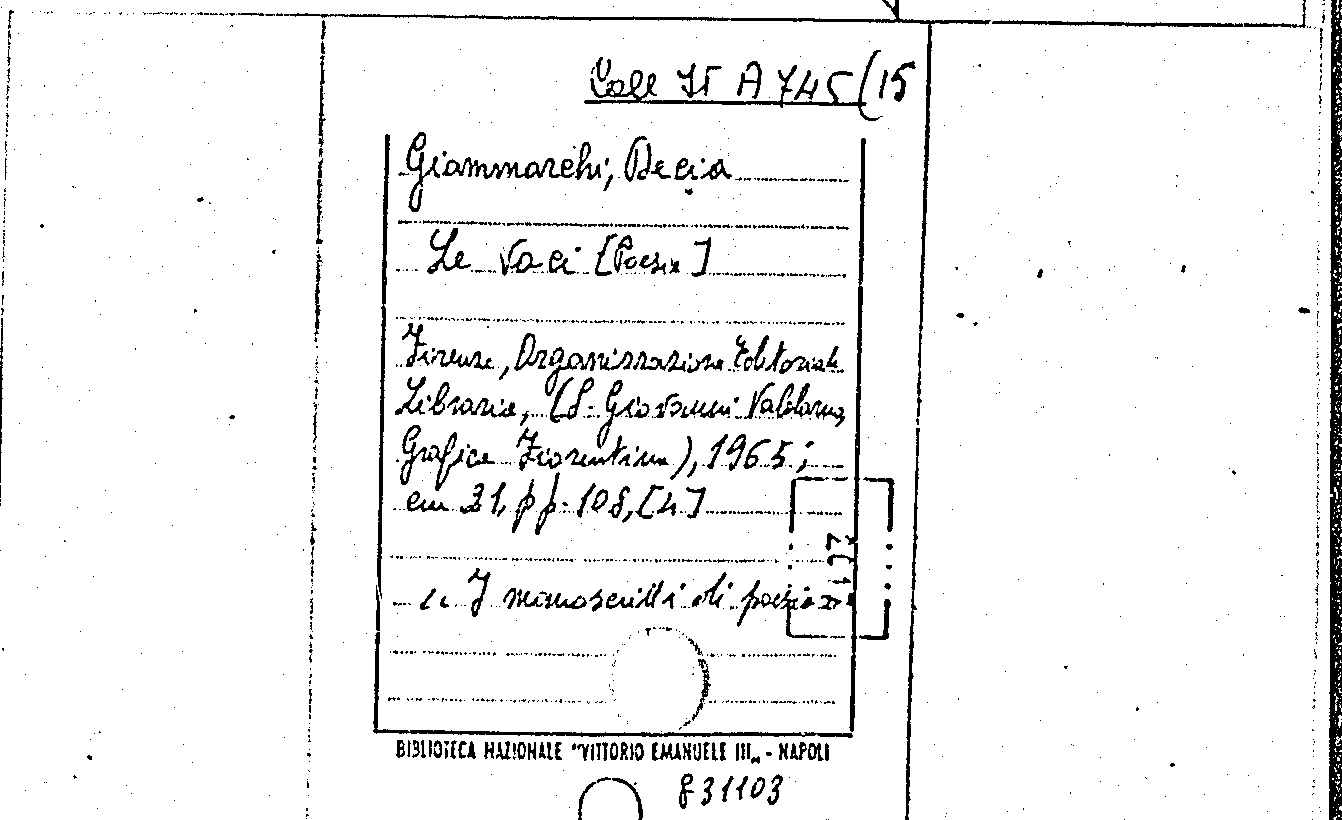 Coll It A 745 (15
Giammarchi, Decia
Le Voci [Poesie]
Firenze, Organizzazione Editoriale
Libraria, (S. Giovanni Valdarno,
Grafica Fiorentina), 1965;
cm 21, pp. 108, [4]
201
"I manoscritti di poesia"
BIBLIOTECA NAZIONALE "VITTORIO EMANUELE III„ - NAPOLI
831103